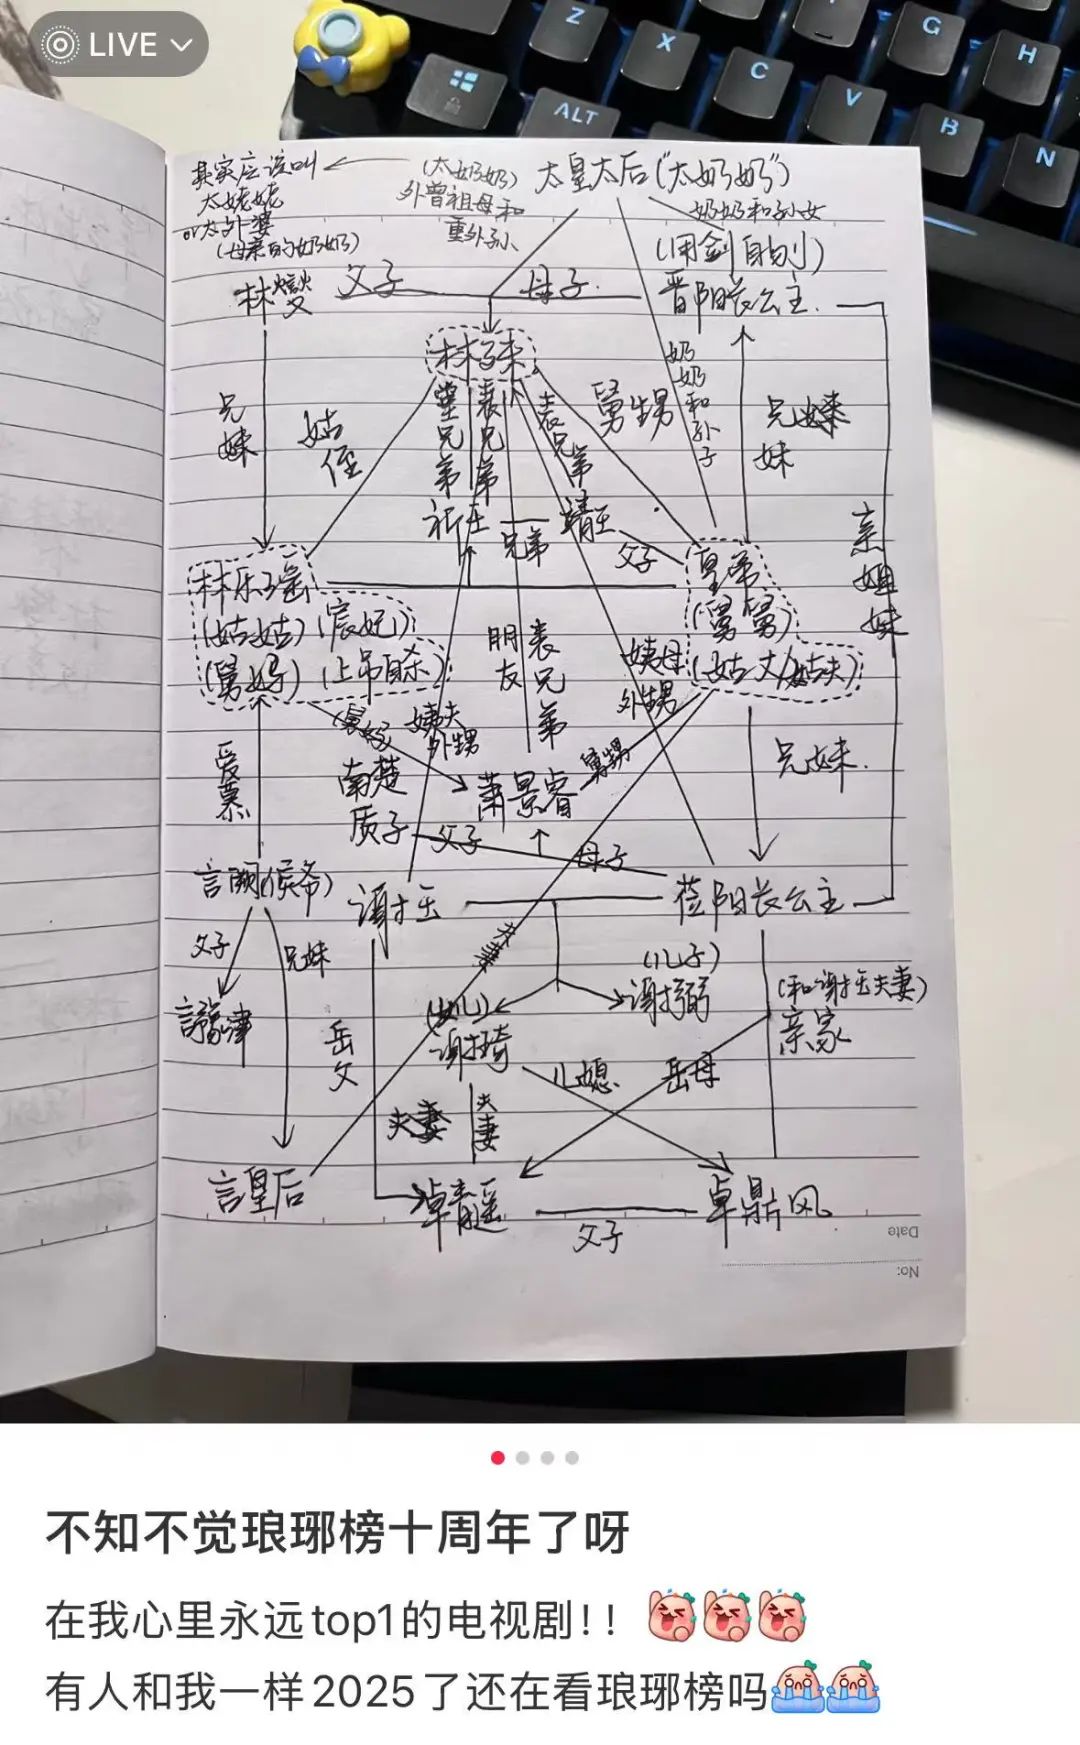 LIVE
Z
X
C
V
B
N
G
H
ALT
其家应该叫
太姥姥
or太外婆
(母亲的奶奶)
(太奶奶)
外曾祖母和
重外孙
太皇太后("太奶奶")
奶奶和孙女
(用剑自刎)
林燮
父子
母子
晋阳长公主
林殊
兄妹
姑侄
堂兄弟
表兄弟
表兄弟
舅甥
奶奶和孙子
兄妹
妹
亲姐妹
祁王
兄弟
靖王
父子
林乐瑶
(姑姑)(宸妃)
(舅妈)(上吊自杀)
皇帝
(舅舅)
(姑丈/姑夫)
朋友
表兄弟
姨母
外甥
姨夫
外甥
爱慕
南楚
质子
父子
萧景睿
舅甥
母子
兄妹
言阙(侯爷)
谢玉
莅阳长公主
夫妻
父子
兄妹
言豫津
岳父
(女儿)
谢绮
(儿子)
谢弼
(和谢玉夫妻)
亲家
儿媳
岳母
夫妻
夫妻
言皇后
卓青遥
父子
卓鼎风
Date
No:
不知不觉琅琊榜十周年了呀
在我心里永远top1的电视剧!!
有人和我一样2025了还在看琅琊榜吗